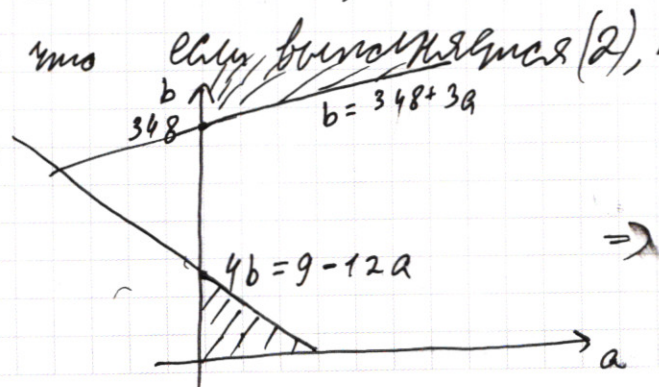 что если выполняется (2),
b
348
b = 348 + 3a
4b = 9 - 12a
=>
a